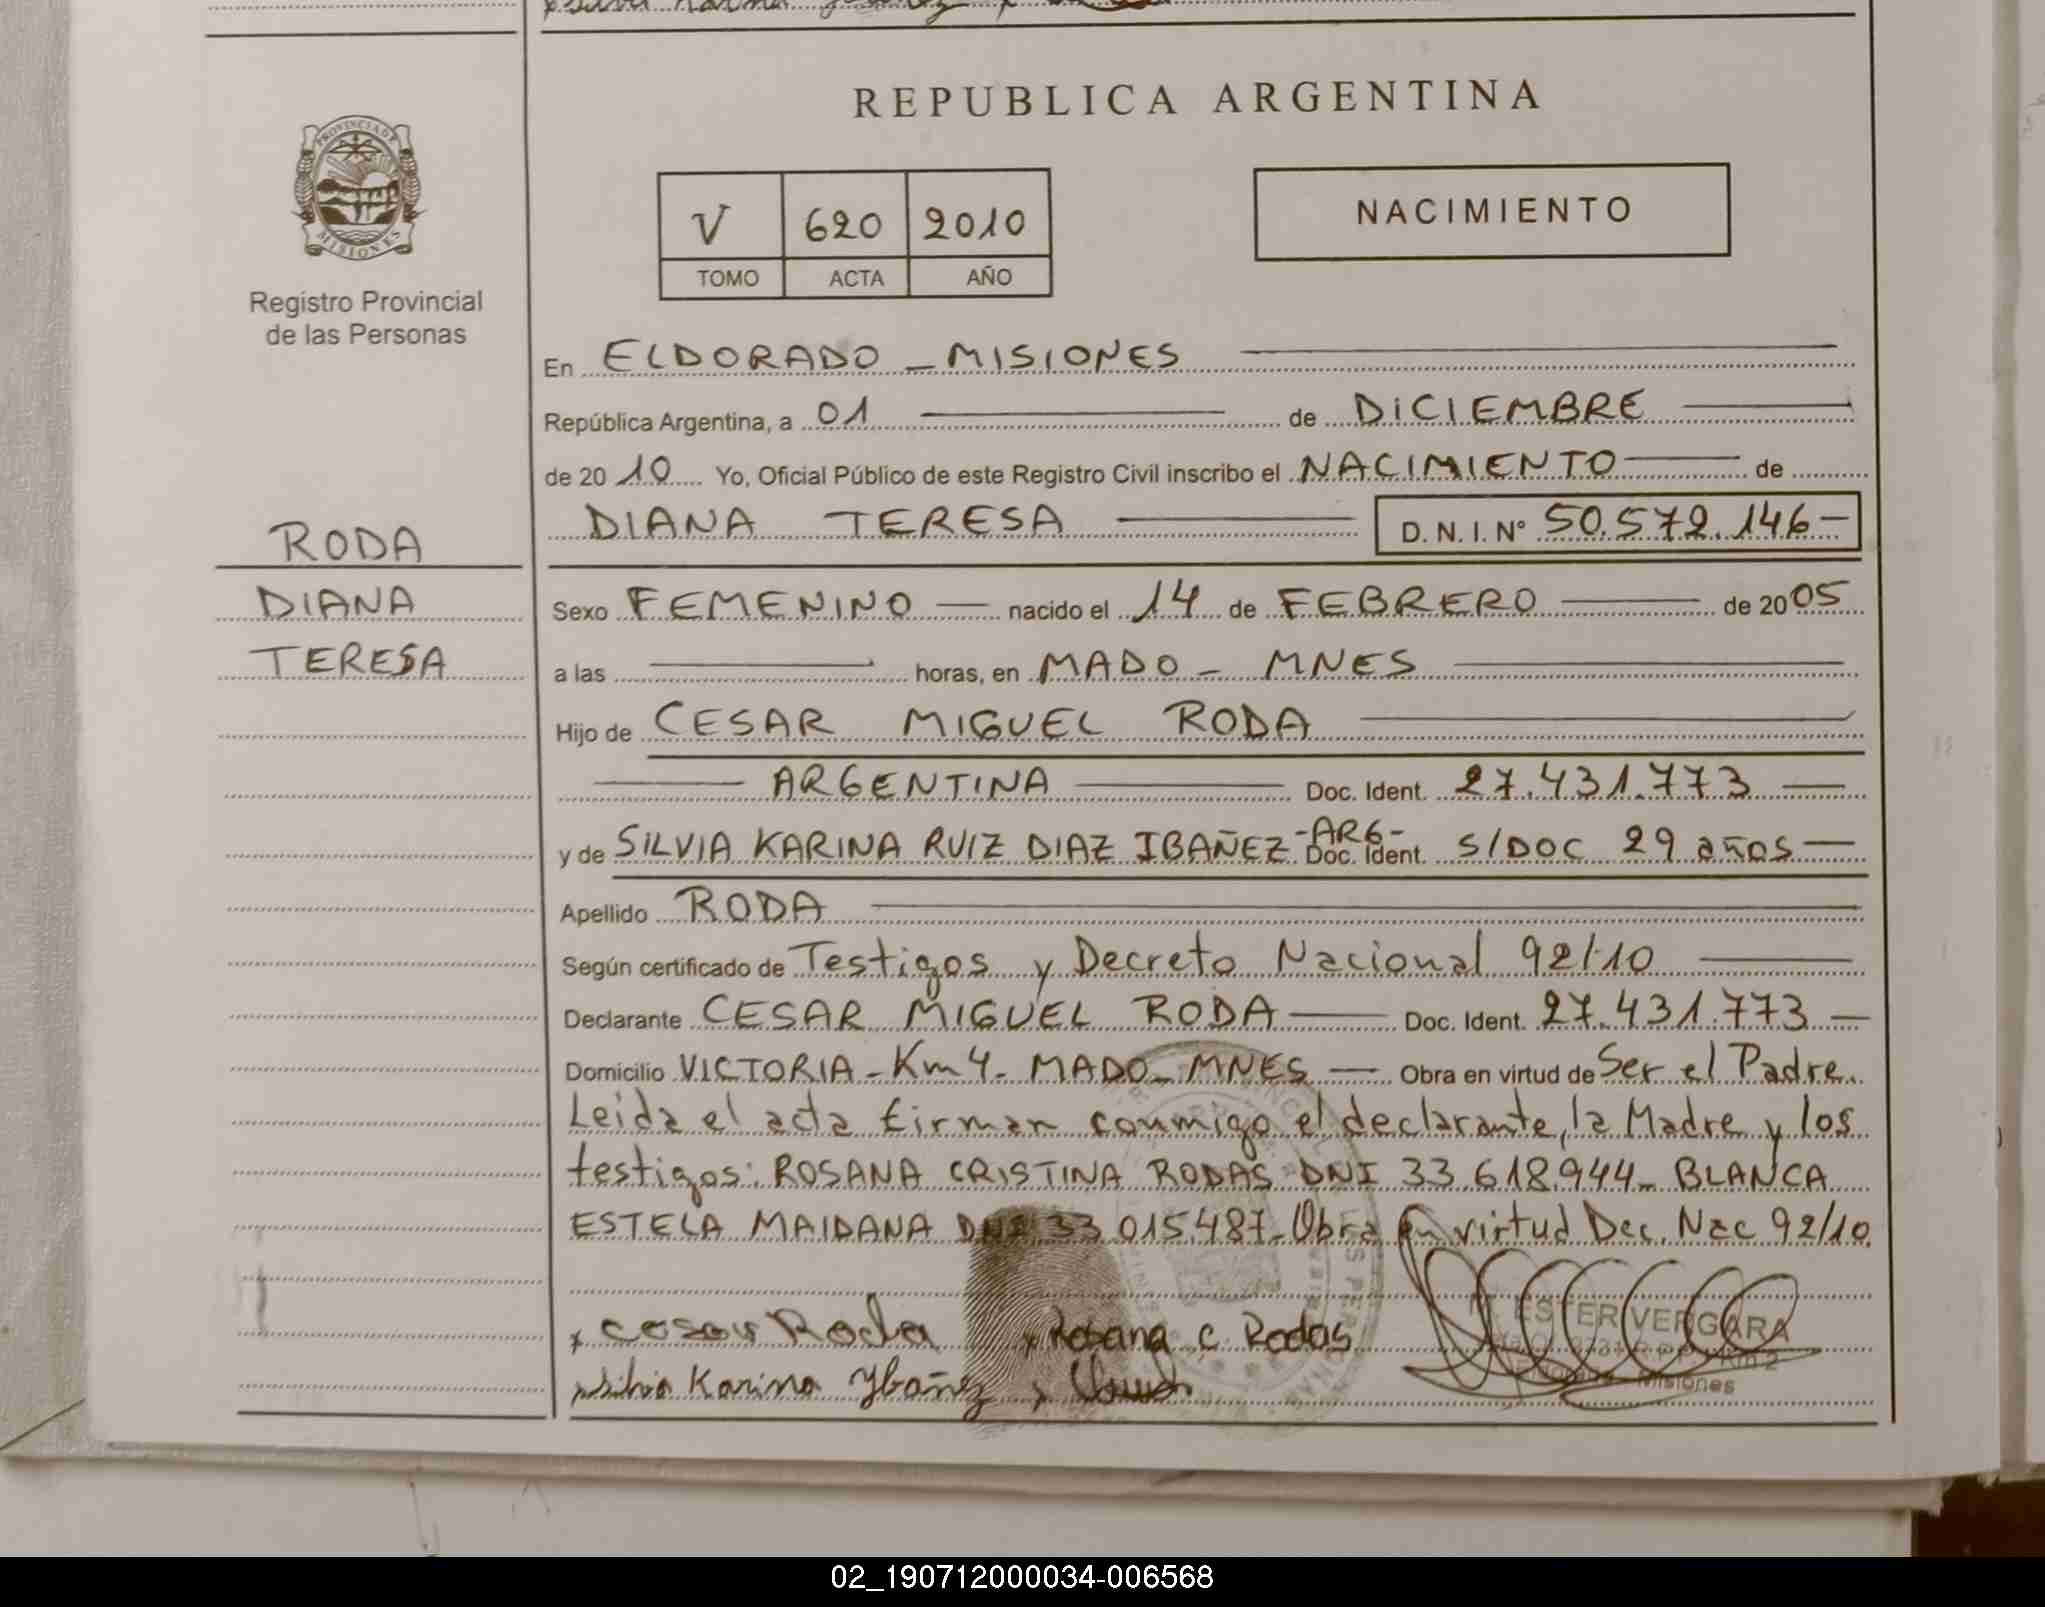 REPUBLICA ARGENTINA
PROVINCIA DE MISIONES
Registro Provincial
de las Personas
V 620 2010
TOMO ACTA AÑO
NACIMIENTO
En ELDORADO - MISIONES
República Argentina, a 01 de DICIEMBRE
de 2010 Yo, Oficial Público de este Registro Civil inscribo el NACIMIENTO de
DIANA TERESA D.N.I. Nº 50.572.146-
RODA
DIANA
TERESA
Sexo FEMENINO nacido el 14 de FEBRERO de 2005
a las horas, en MADO - MNES
Hijo de CESAR MIGUEL RODA
ARGENTINA Doc. Ident. 27.431.773
y de SILVIA KARINA RUIZ DIAZ IBAÑEZ -ARG- Doc. Ident. S/DOC 29 años
Apellido RODA
Según certificado de Testigos y Decreto Nacional 92/10
Declarante CESAR MIGUEL RODA Doc. Ident. 27.431.773
Domicilio VICTORIA - Km 4 - MADO - MNES Obra en virtud de Ser el Padre.
Leida el acta firman conmigo el declarante, la Madre y los
testigos: ROSANA CRISTINA RODAS DNI 33.618.944 - BLANCA
ESTELA MAIDANA DNI 33.015.487 - Obra en virtud Dec. Nac 92/10.
x Cesar Roda x Rosana C. Rodas
x Silvia Karina Ybañez x
ESTER VERGARA
Misiones
02_190712000034-006568